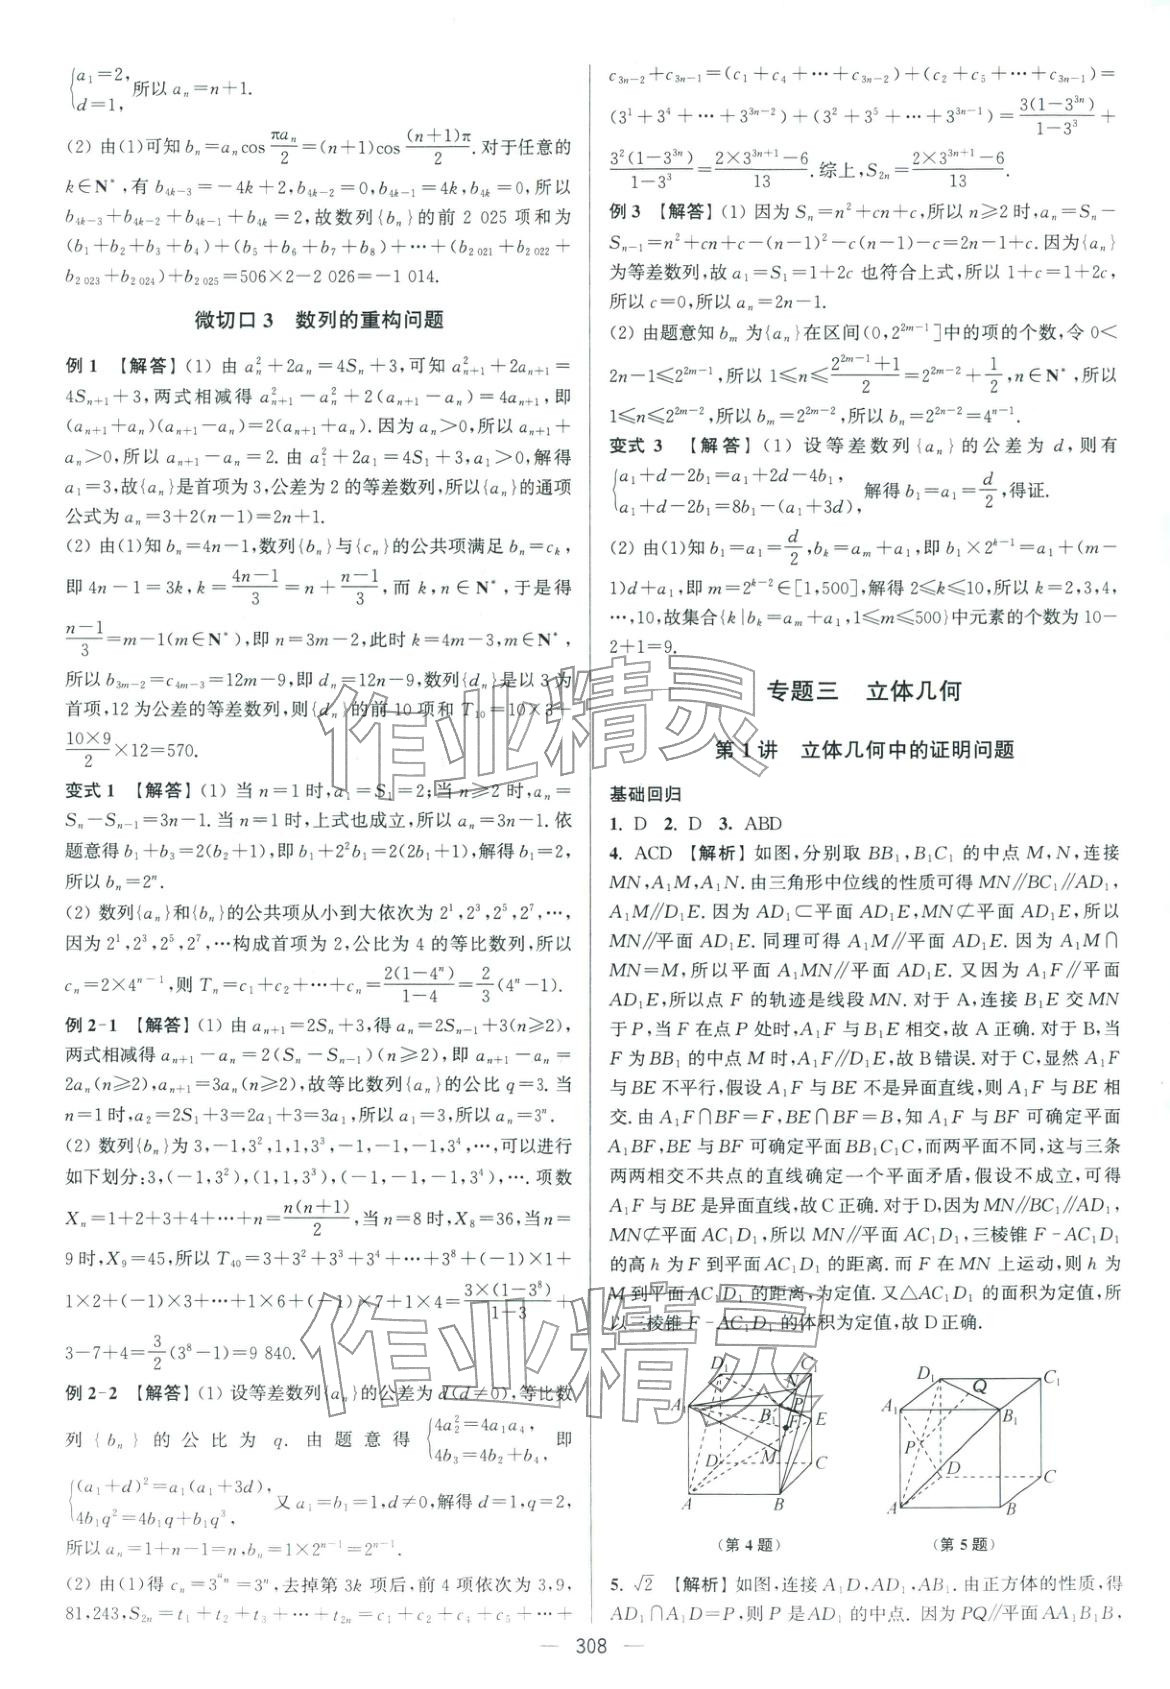 {a₁=2, d=1, 所以 aₙ=n+1.
(2) 由(1)可知 bₙ=aₙcos(πaₙ/2)=(n+1)cos((n+1)π/2).对于任意的
k∈N*,有 b₄ₖ₋₃=-4k+2,b₄ₖ₋₂=0,b₄ₖ₋₁=4k,b₄ₖ=0,所以
b₄ₖ₋₃+b₄ₖ₋₂+b₄ₖ₋₁+b₄ₖ=2,故数列{bₙ}的前 2 025 项和为
(b₁+b₂+b₃+b₄)+(b₅+b₆+b₇+b₈)+…+(b₂ ₀₂₁+b₂ ₀₂₂+
b₂ ₀₂₃+b₂ ₀₂₄)+b₂ ₀₂₅=506×2-2 026=-1 014.
微切口 3 数列的重构问题
例 1 【解答】(1) 由 aₙ²+2aₙ=4Sₙ+3,可知 aₙ₊₁²+2aₙ₊₁=
4Sₙ₊₁+3,两式相减得 aₙ₊₁²-aₙ²+2(aₙ₊₁-aₙ)=4aₙ₊₁,即
(aₙ₊₁+aₙ)(aₙ₊₁-aₙ)=2(aₙ₊₁+aₙ).因为 aₙ>0,所以 aₙ₊₁+
aₙ>0,所以 aₙ₊₁-aₙ=2.由 a₁²+2a₁=4S₁+3,a₁>0,解得
a₁=3,故{aₙ}是首项为 3,公差为 2 的等差数列,所以{aₙ}的通项
公式为 aₙ=3+2(n-1)=2n+1.
(2) 由(1)知 bₙ=4n-1,数列{bₙ}与{cₙ}的公共项满足 bₙ=cₖ,
即 4n-1=3k,k=(4n-1)/3=n+(n-1)/3,而 k,n∈N*,于是得
(n-1)/3=m-1(m∈N*),即 n=3m-2,此时 k=4m-3,m∈N*,
所以 b₃ₘ₋₂=c₄ₘ₋₃=12m-9,即 dₙ=12n-9,数列{dₙ}是以 3 为
首项,12 为公差的等差数列,则{dₙ}的前 10 项和 T₁₀=10×3+
(10×9)/2×12=570.
变式 1 【解答】(1) 当 n=1 时,a₁=S₁=2;当 n≥2 时,aₙ=
Sₙ-Sₙ₋₁=3n-1.当 n=1 时,上式也成立,所以 aₙ=3n-1.依
题意得 b₁+b₃=2(b₂+1),即 b₁+2²b₁=2(2b₁+1),解得 b₁=2,
所以 bₙ=2ⁿ.
(2) 数列{aₙ}和{bₙ}的公共项从小到大依次为 2¹,2³,2⁵,2⁷,…,
因为 2¹,2³,2⁵,2⁷,…构成首项为 2,公比为 4 的等比数列,所以
cₙ=2×4ⁿ⁻¹,则 Tₙ=c₁+c₂+…+cₙ=2(1-4ⁿ)/(1-4)=2/3(4ⁿ-1).
例 2-1 【解答】(1) 由 aₙ₊₁=2Sₙ+3,得 aₙ=2Sₙ₋₁+3(n≥2),
两式相减得 aₙ₊₁-aₙ=2(Sₙ-Sₙ₋₁)(n≥2),即 aₙ₊₁-aₙ=
2aₙ(n≥2),aₙ₊₁=3aₙ(n≥2),故等比数列{aₙ}的公比 q=3.当
n=1 时,a₂=2S₁+3=2a₁+3=3a₁,所以 a₁=3,所以 aₙ=3ⁿ.
(2) 数列{bₙ}为 3,-1,3²,1,1,3³,-1,-1,-1,3⁴,…,可以进行
如下划分:3,(-1,3²),(1,1,3³),(-1,-1,-1,3⁴),….项数
Xₙ=1+2+3+4+…+n=n(n+1)/2,当 n=8 时,X₈=36,当 n=
9 时,X₉=45,所以 T₄₀=3+3²+3³+3⁴+…+3⁸+(-1)×1+
1×2+(-1)×3+…+1×6+(-1)×7+1×4=3×(1-3⁸)/(1-3)+
3-7+4=3/2(3⁸-1)=9 840.
例 2-2 【解答】(1) 设等差数列{aₙ}的公差为 d(d≠0),等比数
列{bₙ}的公比为 q.由题意得{4a₂²=4a₁a₄, 4b₃=4b₂+b₄, 即
{(a₁+d)²=a₁(a₁+3d), 4b₁q²=4b₁q+b₁q³, 又 a₁=b₁=1,d≠0,解得 d=1,q=2,
所以 aₙ=1+n-1=n,bₙ=1×2ⁿ⁻¹=2ⁿ⁻¹.
(2) 由(1)得 cₙ=3^(aₙ)=3ⁿ,去掉第 3k 项后,前 4 项依次为 3,9,
81,243,S₂ₙ=t₁+t₂+t₃+…+t₂ₙ=c₁+c₂+c₄+c₅+…+
c₃ₙ₋₂+c₃ₙ₋₁=(c₁+c₄+…+c₃ₙ₋₂)+(c₂+c₅+…+c₃ₙ₋₁)=
(3¹+3⁴+…+3³ⁿ⁻²)+(3²+3⁵+…+3³ⁿ⁻¹)=3(1-3³ⁿ)/(1-3³)+
3²(1-3³ⁿ)/(1-3³)=(2×3³ⁿ⁺¹-6)/13.综上,S₂ₙ=(2×3³ⁿ⁺¹-6)/13.
例 3 【解答】(1) 因为 Sₙ=n²+cn+c,所以 n≥2 时,aₙ=Sₙ-
Sₙ₋₁=n²+cn+c-(n-1)²-c(n-1)-c=2n-1+c.因为{aₙ}
为等差数列,故 a₁=S₁=1+2c 也符合上式,所以 1+c=1+2c,
所以 c=0,所以 aₙ=2n-1.
(2) 由题意知 bₘ 为{aₙ}在区间(0,2²ᵐ⁻¹]中的项的个数,令 0<
2n-1≤2²ᵐ⁻¹,所以 1≤n≤(2²ᵐ⁻¹+1)/2=2²ᵐ⁻²+1/2,n∈N*,所以
1≤n≤2²ᵐ⁻²,所以 bₘ=2²ᵐ⁻²,所以 bₙ=2²ⁿ⁻²=4ⁿ⁻¹.
变式 3 【解答】(1) 设等差数列{aₙ}的公差为 d,则有
{a₁+d-2b₁=a₁+2d-4b₁, a₁+d-2b₁=8b₁-(a₁+3d), 解得 b₁=a₁=d/2,得证.
(2) 由(1)知 b₁=a₁=d/2,bₖ=aₘ+a₁,即 b₁×2ᵏ⁻¹=a₁+(m-
1)d+a₁,即 m=2ᵏ⁻²∈[1,500],解得 2≤k≤10,所以 k=2,3,4,
…,10,故集合{k|bₖ=aₘ+a₁,1≤m≤500}中元素的个数为 10-
2+1=9.
专题三 立体几何
第 1 讲 立体几何中的证明问题
基础回归
1. D 2. D 3. ABD
4. ACD 【解析】如图,分别取 BB₁,B₁C₁ 的中点 M,N,连接
MN,A₁M,A₁N.由三角形中位线的性质可得 MN∥BC₁∥AD₁,
A₁M∥D₁E.因为 AD₁⊂平面 AD₁E,MN⊄平面 AD₁E,所以
MN∥平面 AD₁E.同理可得 A₁M∥平面 AD₁E.因为 A₁M∩
MN=M,所以平面 A₁MN∥平面 AD₁E.又因为 A₁F∥平面
AD₁E,所以点 F 的轨迹是线段 MN.对于 A,连接 B₁E 交 MN
于 P,当 F 在点 P 处时,A₁F 与 B₁E 相交,故 A 正确.对于 B,当
F 为 BB₁ 的中点 M 时,A₁F∥D₁E,故 B 错误.对于 C,显然 A₁F
与 BE 不平行,假设 A₁F 与 BE 不是异面直线,则 A₁F 与 BE 相
交.由 A₁F∩BF=F,BE∩BF=B,知 A₁F 与 BF 可确定平面
A₁BF,BE 与 BF 可确定平面 BB₁C₁C,而两平面不同,这与三条
两两相交不共点的直线确定一个平面矛盾,假设不成立,可得
A₁F 与 BE 是异面直线,故 C 正确.对于 D,因为 MN∥BC₁∥AD₁,
MN⊄平面 AC₁D₁,所以 MN∥平面 AC₁D₁,三棱锥 F-AC₁D₁
的高 h 为 F 到平面 AC₁D₁ 的距离.而 F 在 MN 上运动,则 h 为
M 到平面 AC₁D₁ 的距离,为定值.又△AC₁D₁ 的面积为定值,所
以三棱锥 F-AC₁D₁ 的体积为定值,故 D 正确.
D₁ C₁ N A₁ B₁ P F E M D C A B
(第 4 题)
D₁ C₁ Q A₁ B₁ P D C A B
(第 5 题)
5. √2 【解析】如图,连接 A₁D,AD₁,AB₁.由正方体的性质,得
AD₁∩A₁D=P,则 P 是 AD₁ 的中点.因为 PQ∥平面 AA₁B₁B,
— 308 —
作业精灵
作业精灵